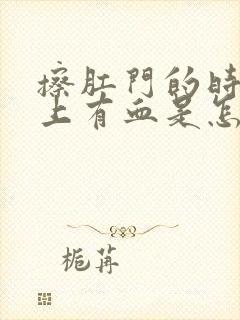 擦肛門的時
上有血是怎
栀苒